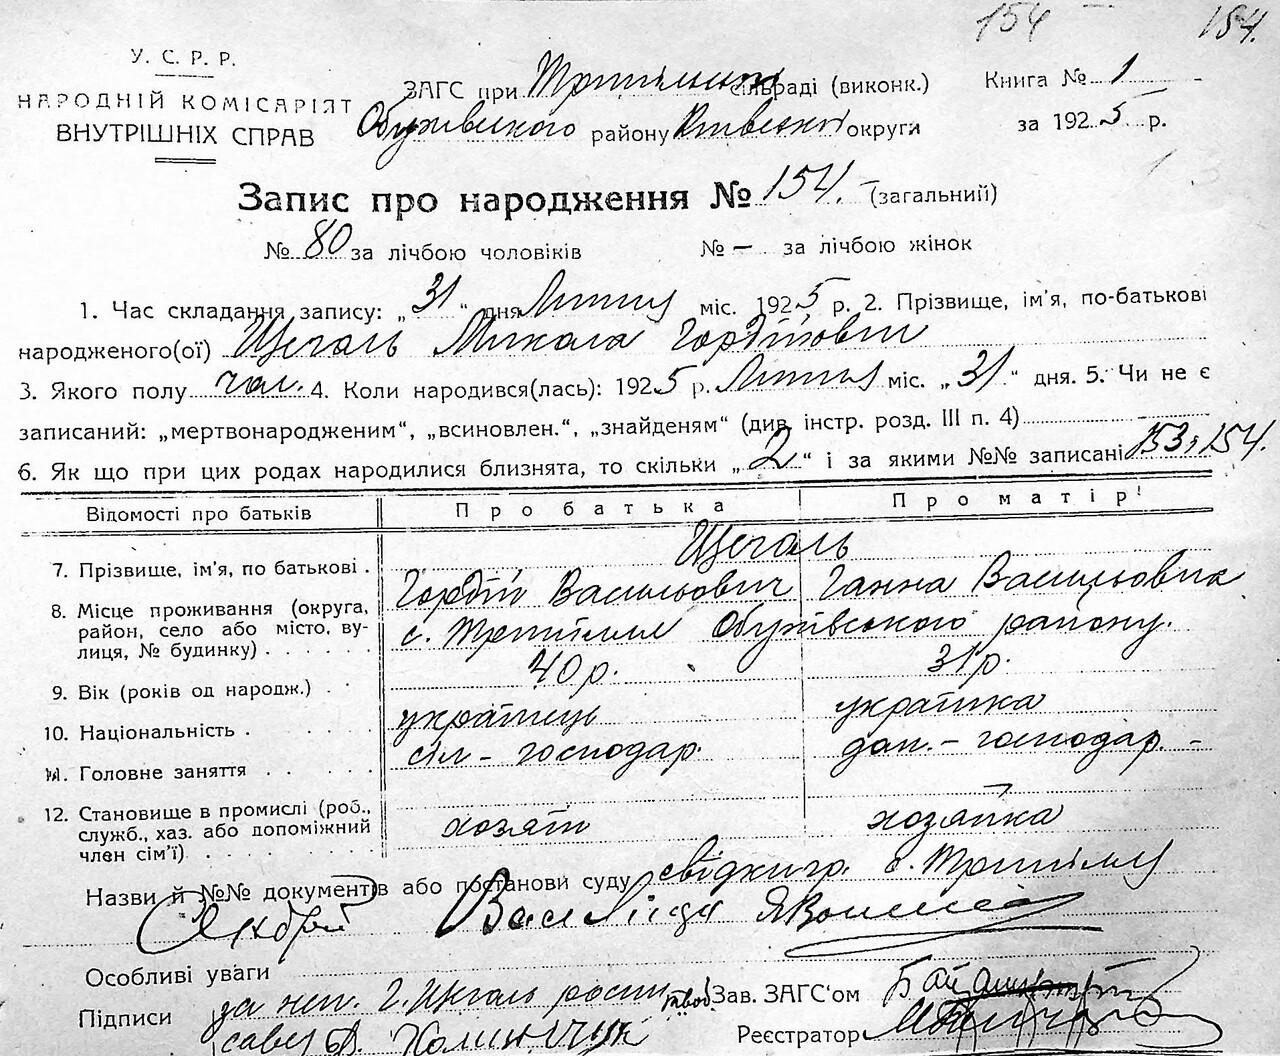 154 154.
У. С. Р. Р.
НАРОДНІЙ КОМІСАРІЯТ
ВНУТРІШНІХ СПРАВ
ЗАГС при Трипільській сільраді (виконк.)
Обухівського району Київської округи
Книга № 1
за 1925 р.
Запис про народження № 154. (загальний)
№ 80 за лічбою чоловіків № — за лічбою жінок
1. Час складання запису: „31“ дня Липня міс. 1925 р. 2. Прізвище, ім'я, по-батькові
народженого(ої) Щеголь Микола Гордійович
3. Якого полу чол. 4. Коли народився(лась): 1925 р. Липня міс. „31“ дня. 5. Чи не є
записаний: „мертвонародженим“, „всиновлен.“, „знайденям“ (див. інстр. розд. III п. 4)
6. Як що при цих родах народилися близнята, то скільки „2“ і за якими №№ записані 153, 154.
Відомості про батьків Про батька Про матір
Щеголь
7. Прізвище, ім'я, по батькові . Гордій Васильович Ганна Васильовна
8. Місце проживання (округа, район, село або місто, вулиця, № будинку) с. Трипілля Обухівського району.
9. Вік (років од народж.) 40 р. 31 р.
10. Національність українець українка
11. Головне заняття сіл-господар. дом.-господар.
12. Становище в промислі (роб., служб., хаз. або допоміжний член сім'ї) хозяїн хозяйка
Назви й №№ документів або постанови суду с. Трипілля
Особливі уваги
Підписи за неп. Г. Щеголь
Зав. ЗАГС'ом
Реєстратор